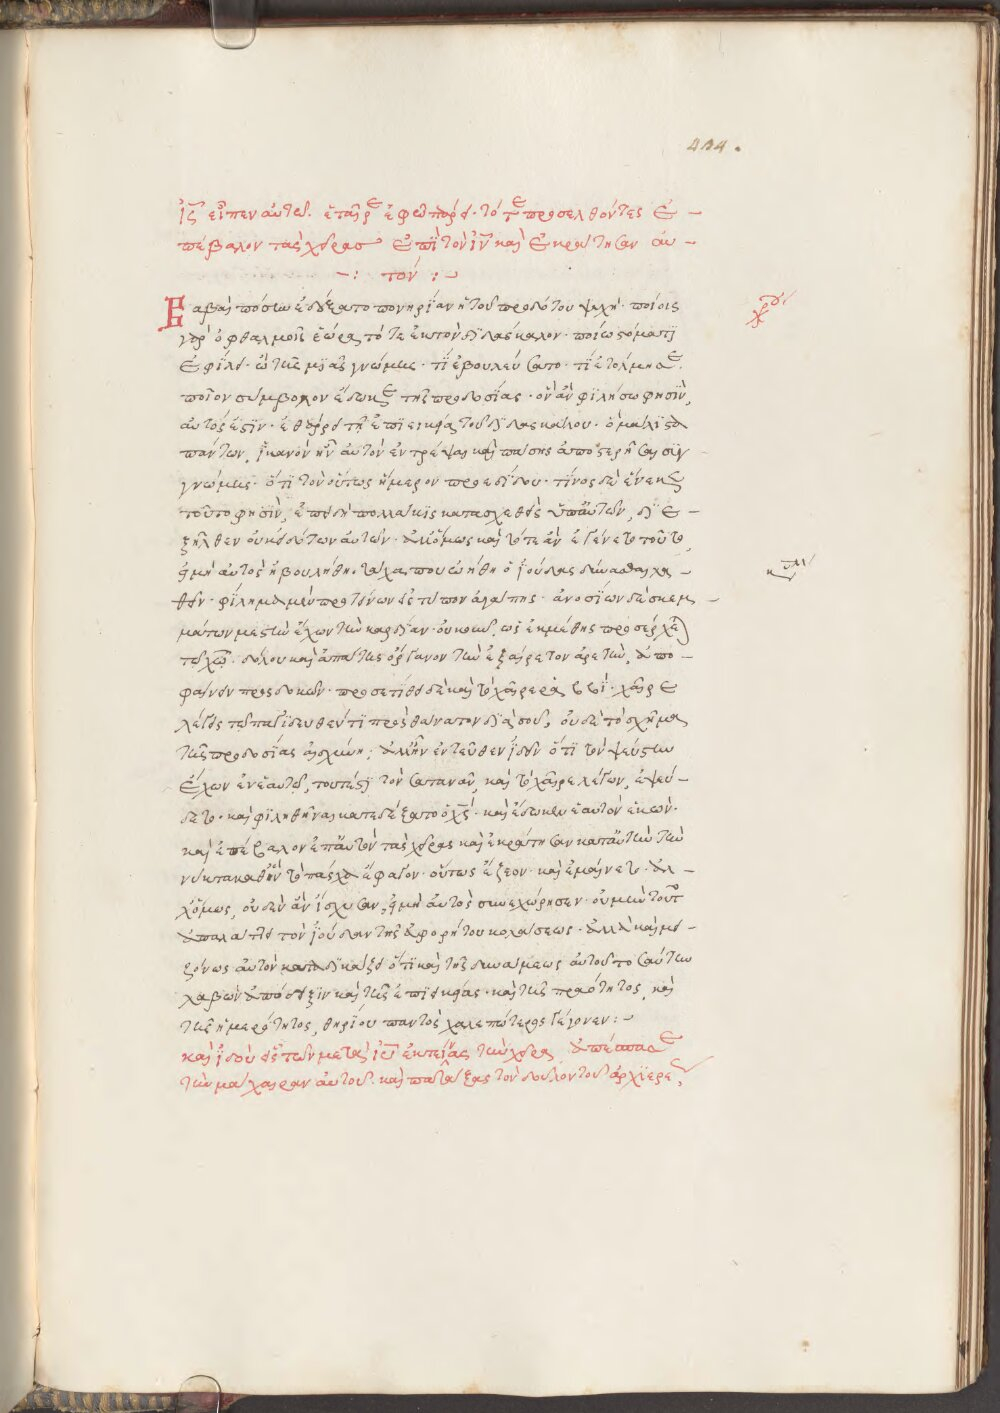 414.
ἰς̅ εἶπεν αὐτῶ. ἑταῖρε ἐφ ὧ πάρει. τότε προσελθόντες ἐ
πέβαλον τὰς χεῖρασ ἐπὶ τὸν ἰν̅ καὶ ἐκράτησαν αὐ
τόν :
Βαβαὶ πόσην ἐδέξατο πονηρίαν ἡ τοῦ προδότου ψυχή. ποίοις
γὰρ ὀφθαλμοῖς ἑώρα τότε εἰς τὸν διδάσκαλον. ποίω στόματι
ἐφίλει. ὢ τῆς μιαρᾶς γνώμης. τί ἐβουλεύσατο. τί ἐτόλμησε.
ποῖον σύμβολον ἔδωκε τῆς προδοσίας. ὃν ἂν φιλήσω φησὶν,
αὐτός ἐστιν. ἐθάρρει τῇ ἐπιεικεία τοῦ διδασκάλου. ὃ μάλιστα
πάντων, ἱκανὸν ἦν αὐτὸν ἐντρέψαι καὶ πάσης ἀποστερῆσαι συγ
γνώμης. ὅτι τὸν οὕτως ἥμερον προεδίδου. τίνος δὲ ἕνεκε
τοῦτο φησὶν, ἐπειδὴ πολλάκις κατασχεθεὶς ὑπ αὐτῶν, διε
ξῆλθεν οὐκ εἰδότων αὐτῶν. ἀλλ ὅμως καὶ τότε ἂν ἐγένετο τοῦτο,
εἰ μὴ αὐτὸς ἠβουλήθη. τάχα που ὠήθη ὁ ἰούδας δύνασθαι λα
θεῖν. φίλημα μὲν προτείνων εἰς τύπον ἀγάπης. ἀνοσίων δὲ σκεμ
μάτων μεστὴν ἔχων τὴν καρδίαν. οὐκοῦν, ὡς ἐκ μέθης προσέρχεται
τῶ χω̅. δόλου καὶ ἀπάτης ὄργανον τὴν ἐξαίρετον ἀρετὴν, ἀπο
φαίνειν προσδοκῶν. προσετίθει δὲ καὶ τὸ χαῖρε ῥαββί. χαῖρε
λέγεις τῶ παγιδευθέντι πρὸς θάνατον διὰ σοῦ, οὐδὲ τὸ σχῆμα
τῆς προδοσίας αἰσχύνη; ἀλλ ἦν ἐντεῦθεν ἰδεῖν ὅτι τὸν ψεύστην
ἔχων ἐν ἑαυτῶ, τουτέστι τὸν σατανᾶν, καὶ τὸ χαῖρε λέγων, ἐψεύ
δετο. καὶ φιληθῆναι κατεδέξατο ὁ χς̅. καὶ ἔδωκεν ἑαυτὸν ἑκών.
καὶ ἐπέβαλον ἐπ αὐτὸν τὰς χεῖρας καὶ ἐκράτησαν κατ αὐτὴν τὴν
νύκτα καθ ἣν τὸ πάσχα ἔφαγον. οὕτως ἔζεον. καὶ ἐμαίνετο. ἀλ
λ ὅμως, οὐδὲν ἂν ἴσχυσαν, εἰ μὴ αὐτὸς συνεχώρησεν. οὐ μὴν τοῦτο
ἀπαλάττει τὸν ἰούδαν τῆς ἀφορήτου κολάσεως. ἀλλὰ καὶ μει
ζόνως αὐτὸν καταδικάζει ὅτι καὶ τῆς δυνάμεως αὐτοῦ τοσαύτην
λαβὼν ἀπόδειξιν καὶ τῆς ἐπιεικείας. καὶ τῆς πραότητος, καὶ
τῆς ἡμερότητος, θηρίου παντὸς χαλεπώτερος γέγονεν :
καὶ ἰδοὺ εἷς τῶν μετὰ ἰυ̅ ἐκτείνας τὴν χεῖρα ἀπέσπασε
τὴν μάχαιραν αὐτοῦ. καὶ πατάξας τὸν δοῦλον τοῦ ἀρχιερέως,